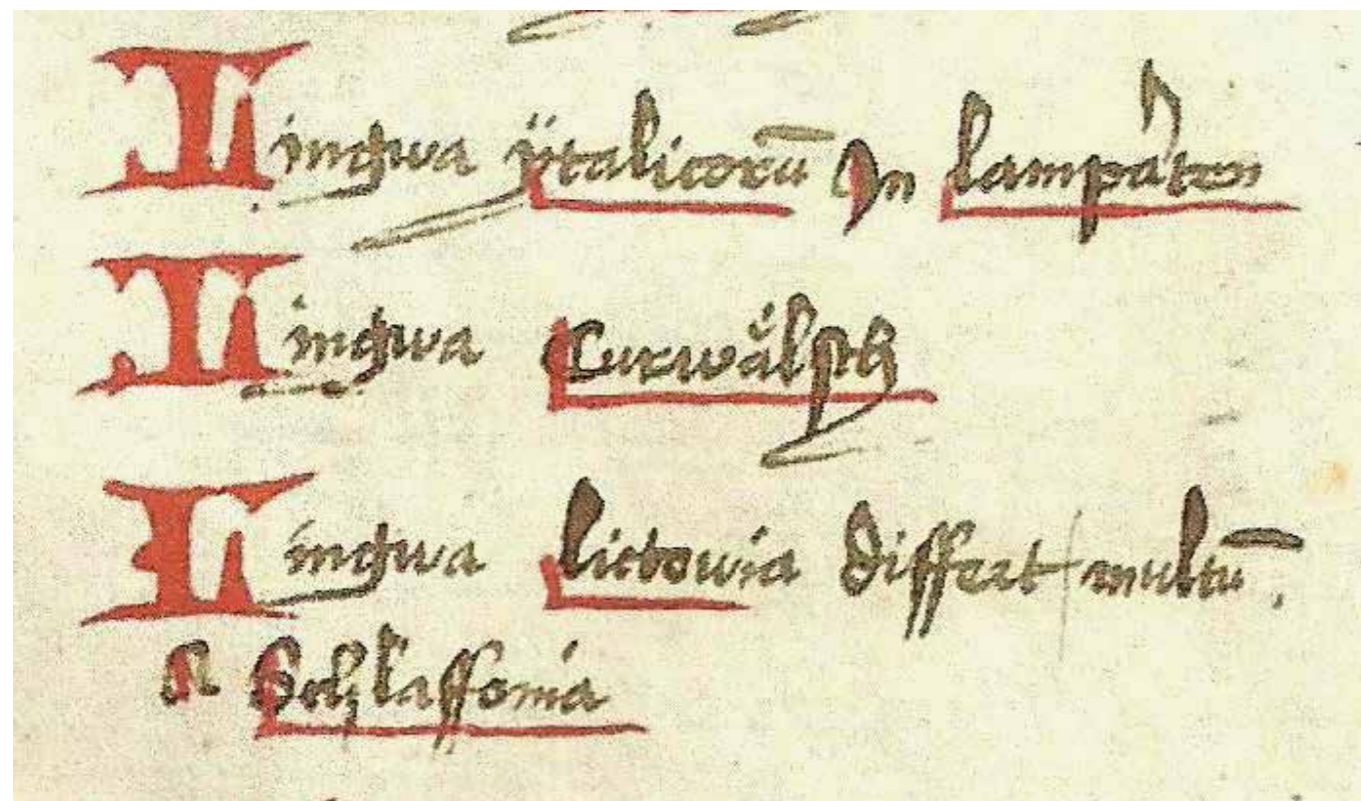 Lingwa ÿtalicorū In lampa͛ten
Lingwa Curwålsch
Lingwa lictowia differt multū.
A Schlaffonia